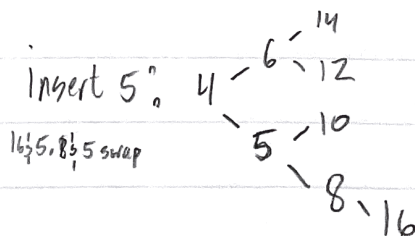 Insert 5:
16 & 5, 8 & 5 swap
14
6
12
4
10
5
8
16